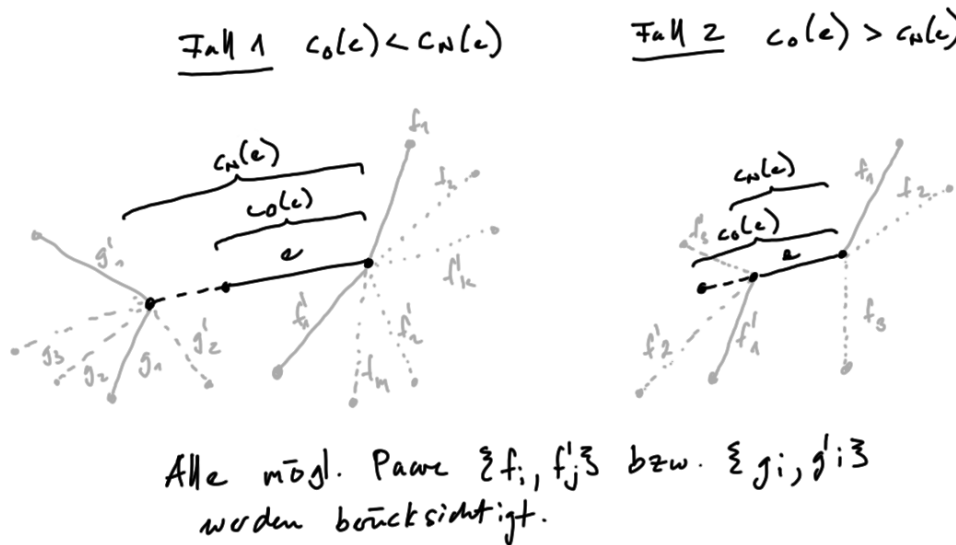 Fall 1 c₀(e) < c_N(e)
Fall 2 c₀(e) > c_N(e)
c_N(e)
c₀(e)
e
f₁
f₂
f'ₖ
f'₂
f_m
f'₁
g'₁
g'₂
g₁
g₂
g₃
c_N(e)
c₀(e)
e
f₁
f₂
f₃
f'₁
f'₂
f'₃
Alle mögl. Paare {f_i, f'_j} bzw. {g_i, g'_i}
werden berücksichtigt.